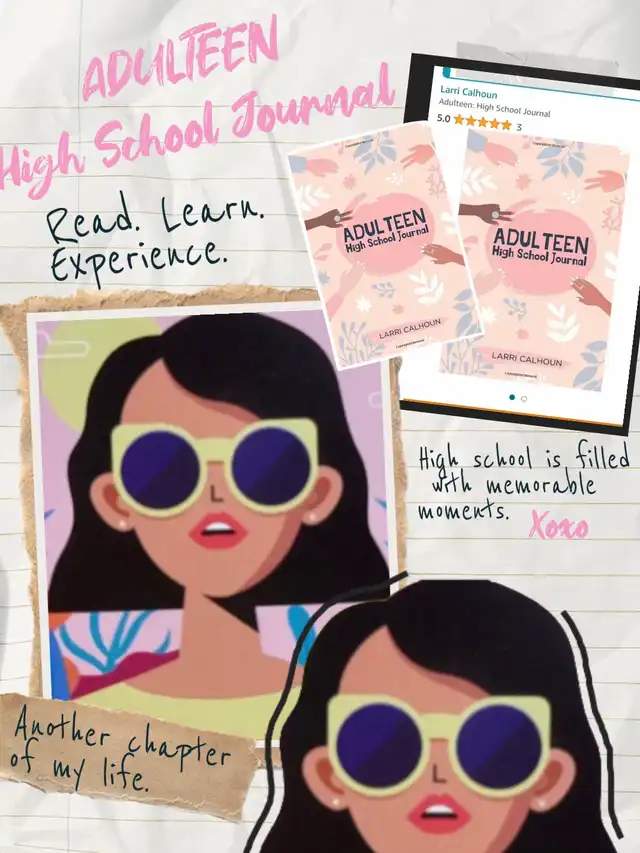 ADULTEEN
High School Journal
Read. Learn.
Experience.
Larri Calhoun
Adulteen: High School Journal
5.0
3
ADULTEEN
High School Journal
LARRI CALHOUN
ADULTEEN
High School Journal
LARRI CALHOUN
High school is filled
with memorable
moments.
Xoxo
Another chapter
of my life.